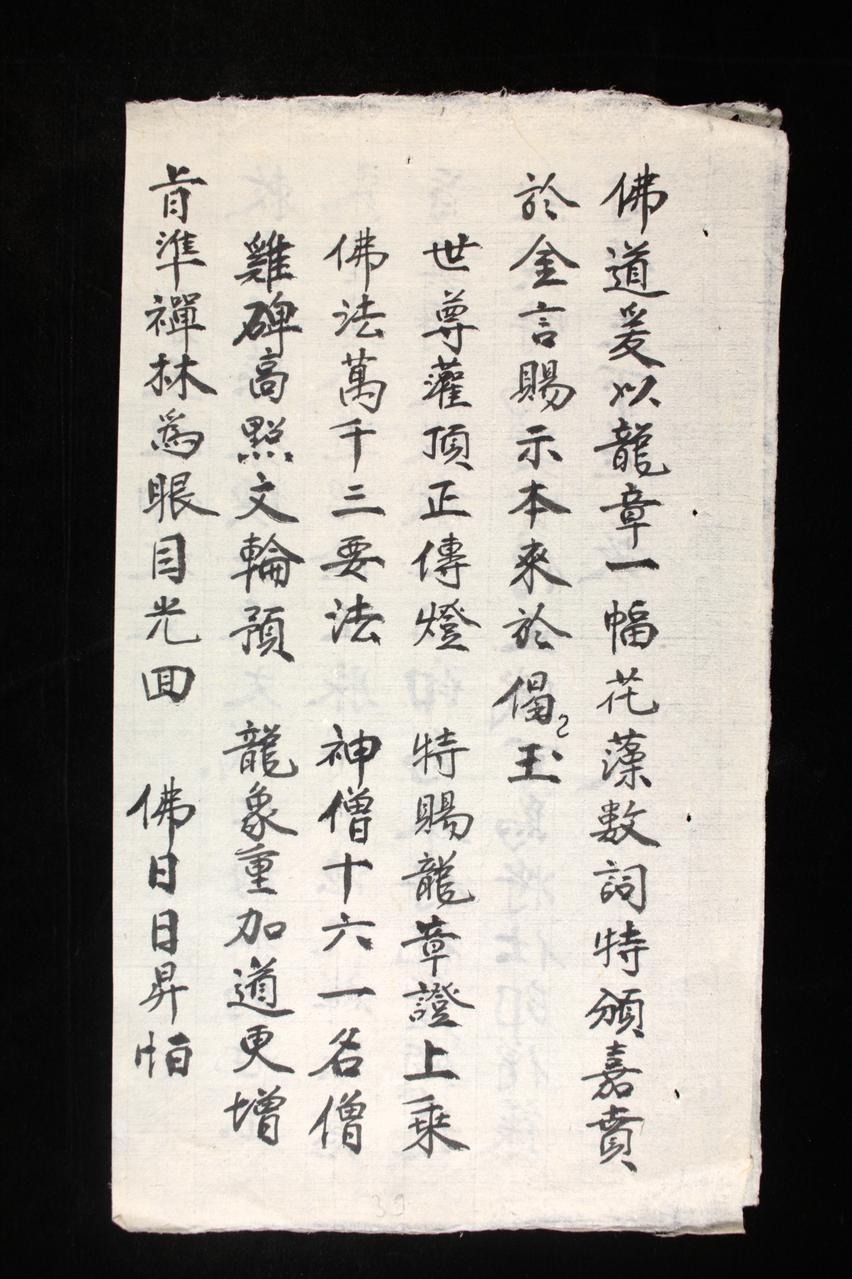 佛道爰以龍章一幅花藻数詞特頒嘉賁
於金言賜示本来於偈〻玉
世尊灌頂正傳燈 特賜龍章證上乗
佛法萬千三要法 神僧十六一名僧
雞碑高㸃文輪預 龍象重加道更增
肯準禪林爲眼目光回 佛日日昇恒
39